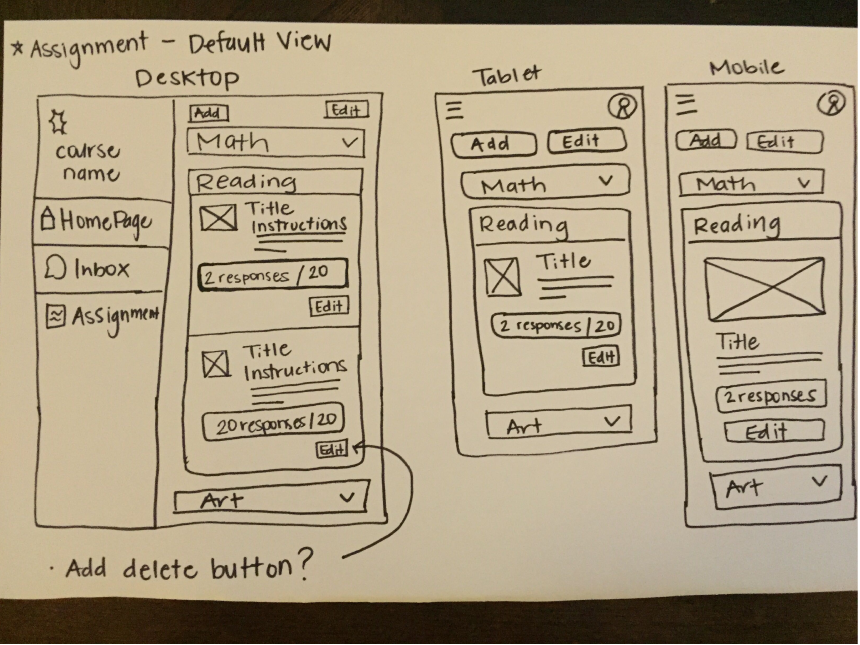 * Assignment - Default View
Desktop
course
name
HomePage
Inbox
Assignment
Add Edit
Math
Reading
Title
Instructions
2 responses / 20
Edit
Title
Instructions
20 responses / 20
Edit
Art
· Add delete button?
Tablet
Add Edit
Math
Reading
Title
2 responses / 20
Edit
Art
Mobile
Add Edit
Math
Reading
Title
2 responses
Edit
Art